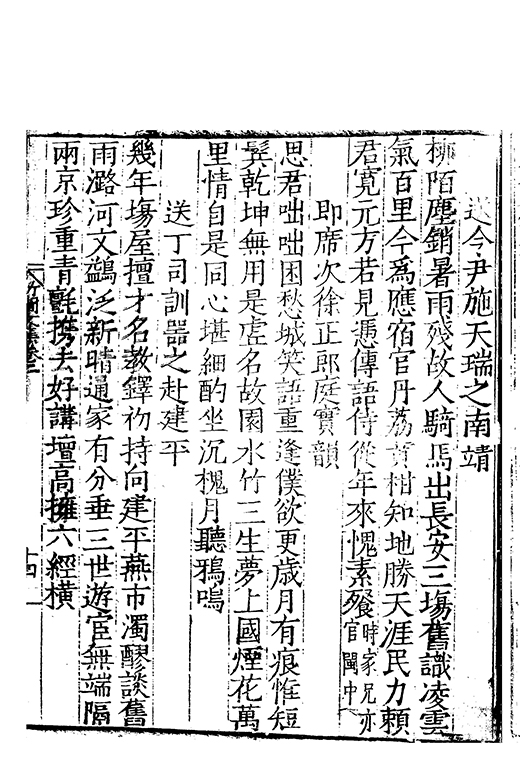 送令尹施天瑞之南靖
柳陌塵銷暑雨殘故人騎馬出長安三塲舊識凌雲
氣百里今爲應宿官丹荔黃柑知地勝天涯民力賴
君寛元方若見憑傳語侍從年來愧素飱時家兄亦官閩中
即席次徐正郎庭實韻
思君咄咄困愁城笑語重逢僕欲更歳月有痕惟短
鬂乾坤無用是虛名故園水竹三生夢上國煙花萬
里情自是同心堪細酌坐沉槐月聽鴉鳴
送丁司訓器之赴建平
幾年塲屋擅才名教鐸初持向建平蕪市濁醪談舊
雨潞河文鷁泛新晴通家有分垂三世遊宦無端隔
兩京珍重青氊携去好講壇高擁六經橫
十四